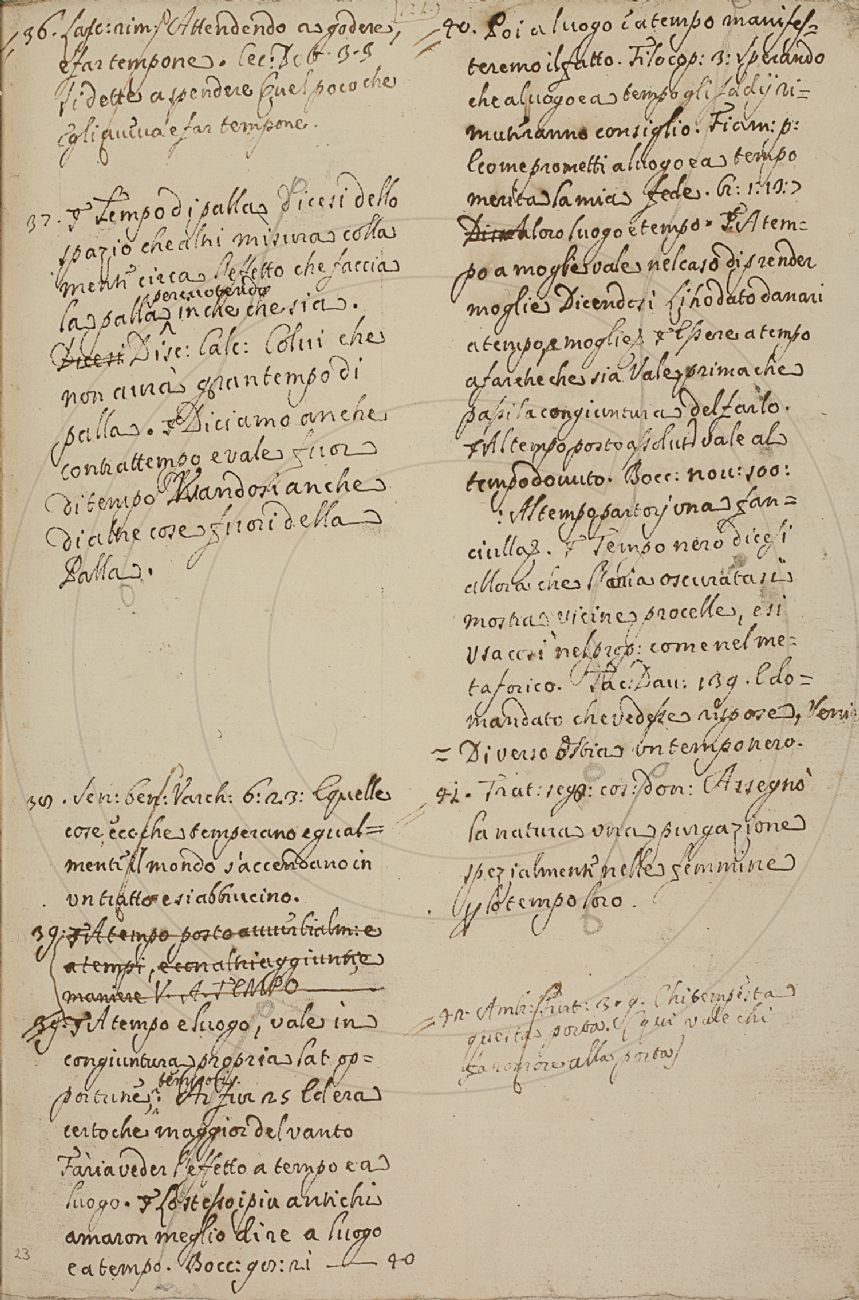 36. Lasc: rim: Attendendo a godere,
e far tempone. Cec: Dot. 3. 3
Si dette a spendere quel poco che
egli aveva e far tempone.
37. Tempo di palla, Dicesi dello
spazio che altri misura colla
mente circa l'effetto che faccia
la palla percuotendo in che che sia.
Dicesi Disc: Calc: Colui che
non aurà gran tempo di
palla. Diciamo anche
contrattempo e vale fuor
di tempo Usandosi anche
di altre cose fuori della
Palla.
38. Sen: ben: Varch: 6: 23: E quelle
cose, ecc che temperano egual=
mente il mondo s'accendano in
un tratto e si abbrucino.
39. A tempo posto avverbialm: e
a tempi, e con altri aggiunti, e
maniere V. A TEMPO
39. A tempo e luogo, vale in
congiuntura propria lat. op=
portune, tempori. Ar. fur 25 Ed era
certo che maggior del vanto
Faria veder l'effetto a tempo e a
luogo. Lo stesso i più antichi
amaron meglio dire a luogo
e a tempo. Bocc: g: 21 — 40
(122)
40. Poi a luogo e a tempo manifes=
teremo il fatto. Filocop: 3: sperando
che a luogo e a tempo gli Iddij ri=
muteranno consiglio. Fiam: p:
E come prometti a luogo e a tempo
merita la mia fede. 6: 1: 11: 7
Dicesi a loro luogo e tempo. A tem=
po a moglie vale nel caso di prender
moglie Dicendosi Gli ho dato danari
a tempo e moglie. Essere a tempo
a far che che sia Vale prima che
passi la congiuntura del farlo.
Al tempo posto assolut: vale al
tempo dovuto. Bocc: nov: 100:
Al tempo partorj una fan=
ciulla. Tempo nero dicesi
allora che l'aria oscuratasi
mostra vicine procelle, e si
usa così nel prop: come nel me=
taforico. Tac: Dav: 139. E do=
mandato che vedesse rispose, Veni=
= Di verso Ostia un tempo nero.
41. Trat: segr: cos: don: Assegnò
la natura una purgazione
spezialmente nelle femmine
per lo tempo loro.
42. Amb: Furt: 3. 9. Chi tempesta
questa porta. (qui vale chi
fa romore alla porta)
23